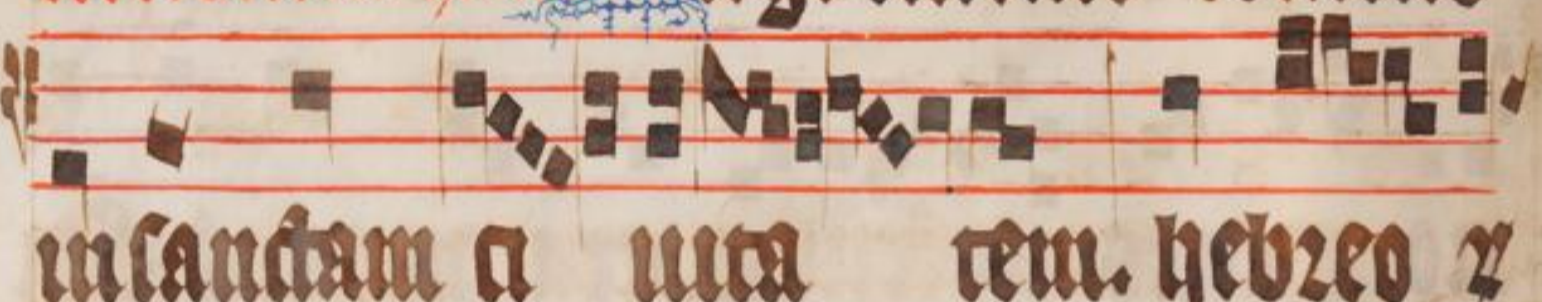 in sanctam ci uita tem. hebreo ꝝ